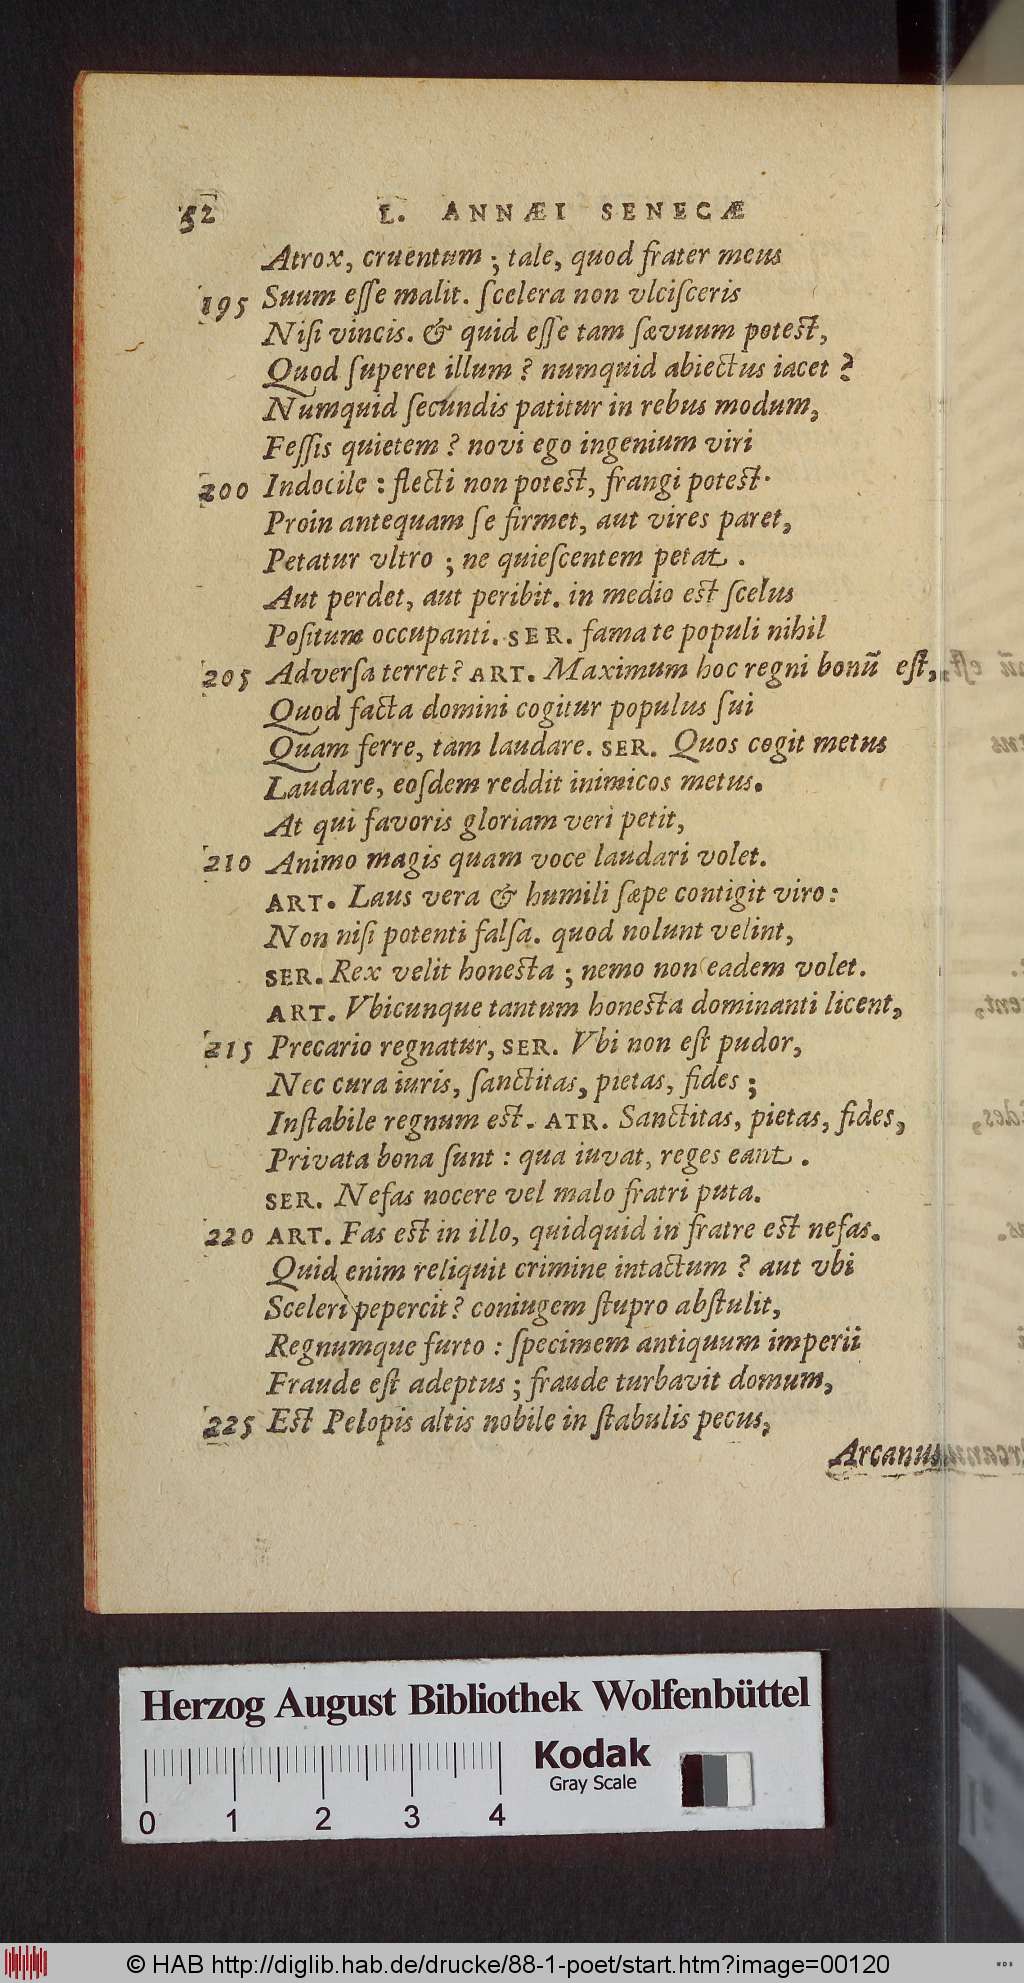 52 L. ANNÆI SENECÆ
Atrox, cruentum ; tale, quod frater meus
195 Suum eſſe malit. ſcelera non vlciſceris
Niſi vincis. & quid eſſe tam ſævuum poteſt,
Quod ſuperet illum ? numquid abiectus iacet ?
Numquid ſecundis patitur in rebus modum,
Feſſis quietem ? novi ego ingenium viri
200 Indocile : flecti non poteſt, frangi poteſt.
Proin antequam ſe firmet, aut vires paret,
Petatur vltro ; ne quieſcentem petat .
Aut perdet, aut peribit. in medio eſt ſcelus
Poſitum occupanti. SER. fama te populi nihil
205 Adverſa terret? ART. Maximum hoc regni bonū eſt,
Quod facta domini cogitur populus ſui
Quam ferre, tam laudare. SER. Quos cogit metus
Laudare, eoſdem reddit inimicos metus.
At qui favoris gloriam veri petit,
210 Animo magis quam voce laudari volet.
ART. Laus vera & humili ſæpe contigit viro:
Non niſi potenti falſa. quod nolunt velint,
SER. Rex velit honeſta ; nemo non eadem volet.
ART. Vbicunque tantum honeſta dominanti licent,
215 Precario regnatur, SER. Vbi non eſt pudor,
Nec cura iuris, ſanctitas, pietas, fides ;
Inſtabile regnum eſt. ATR. Sanctitas, pietas, fides,
Privata bona ſunt : qua iuvat, reges eant .
SER. Nefas nocere vel malo fratri puta.
220 ART. Fas eſt in illo, quidquid in fratre eſt nefas.
Quid enim reliquit crimine intactum ? aut vbi
Sceleri pepercit? coniugem ſtupro abſtulit,
Regnumque furto : ſpecimem antiquum imperii
Fraude eſt adeptus ; fraude turbavit domum,
225 Eſt Pelopis altis nobile in ſtabulis pecus,
Arcanus
Herzog August Bibliothek Wolfenbüttel
Kodak
Gray Scale
0 1 2 3 4
© HAB http://diglib.hab.de/drucke/88-1-poet/start.htm?image=00120